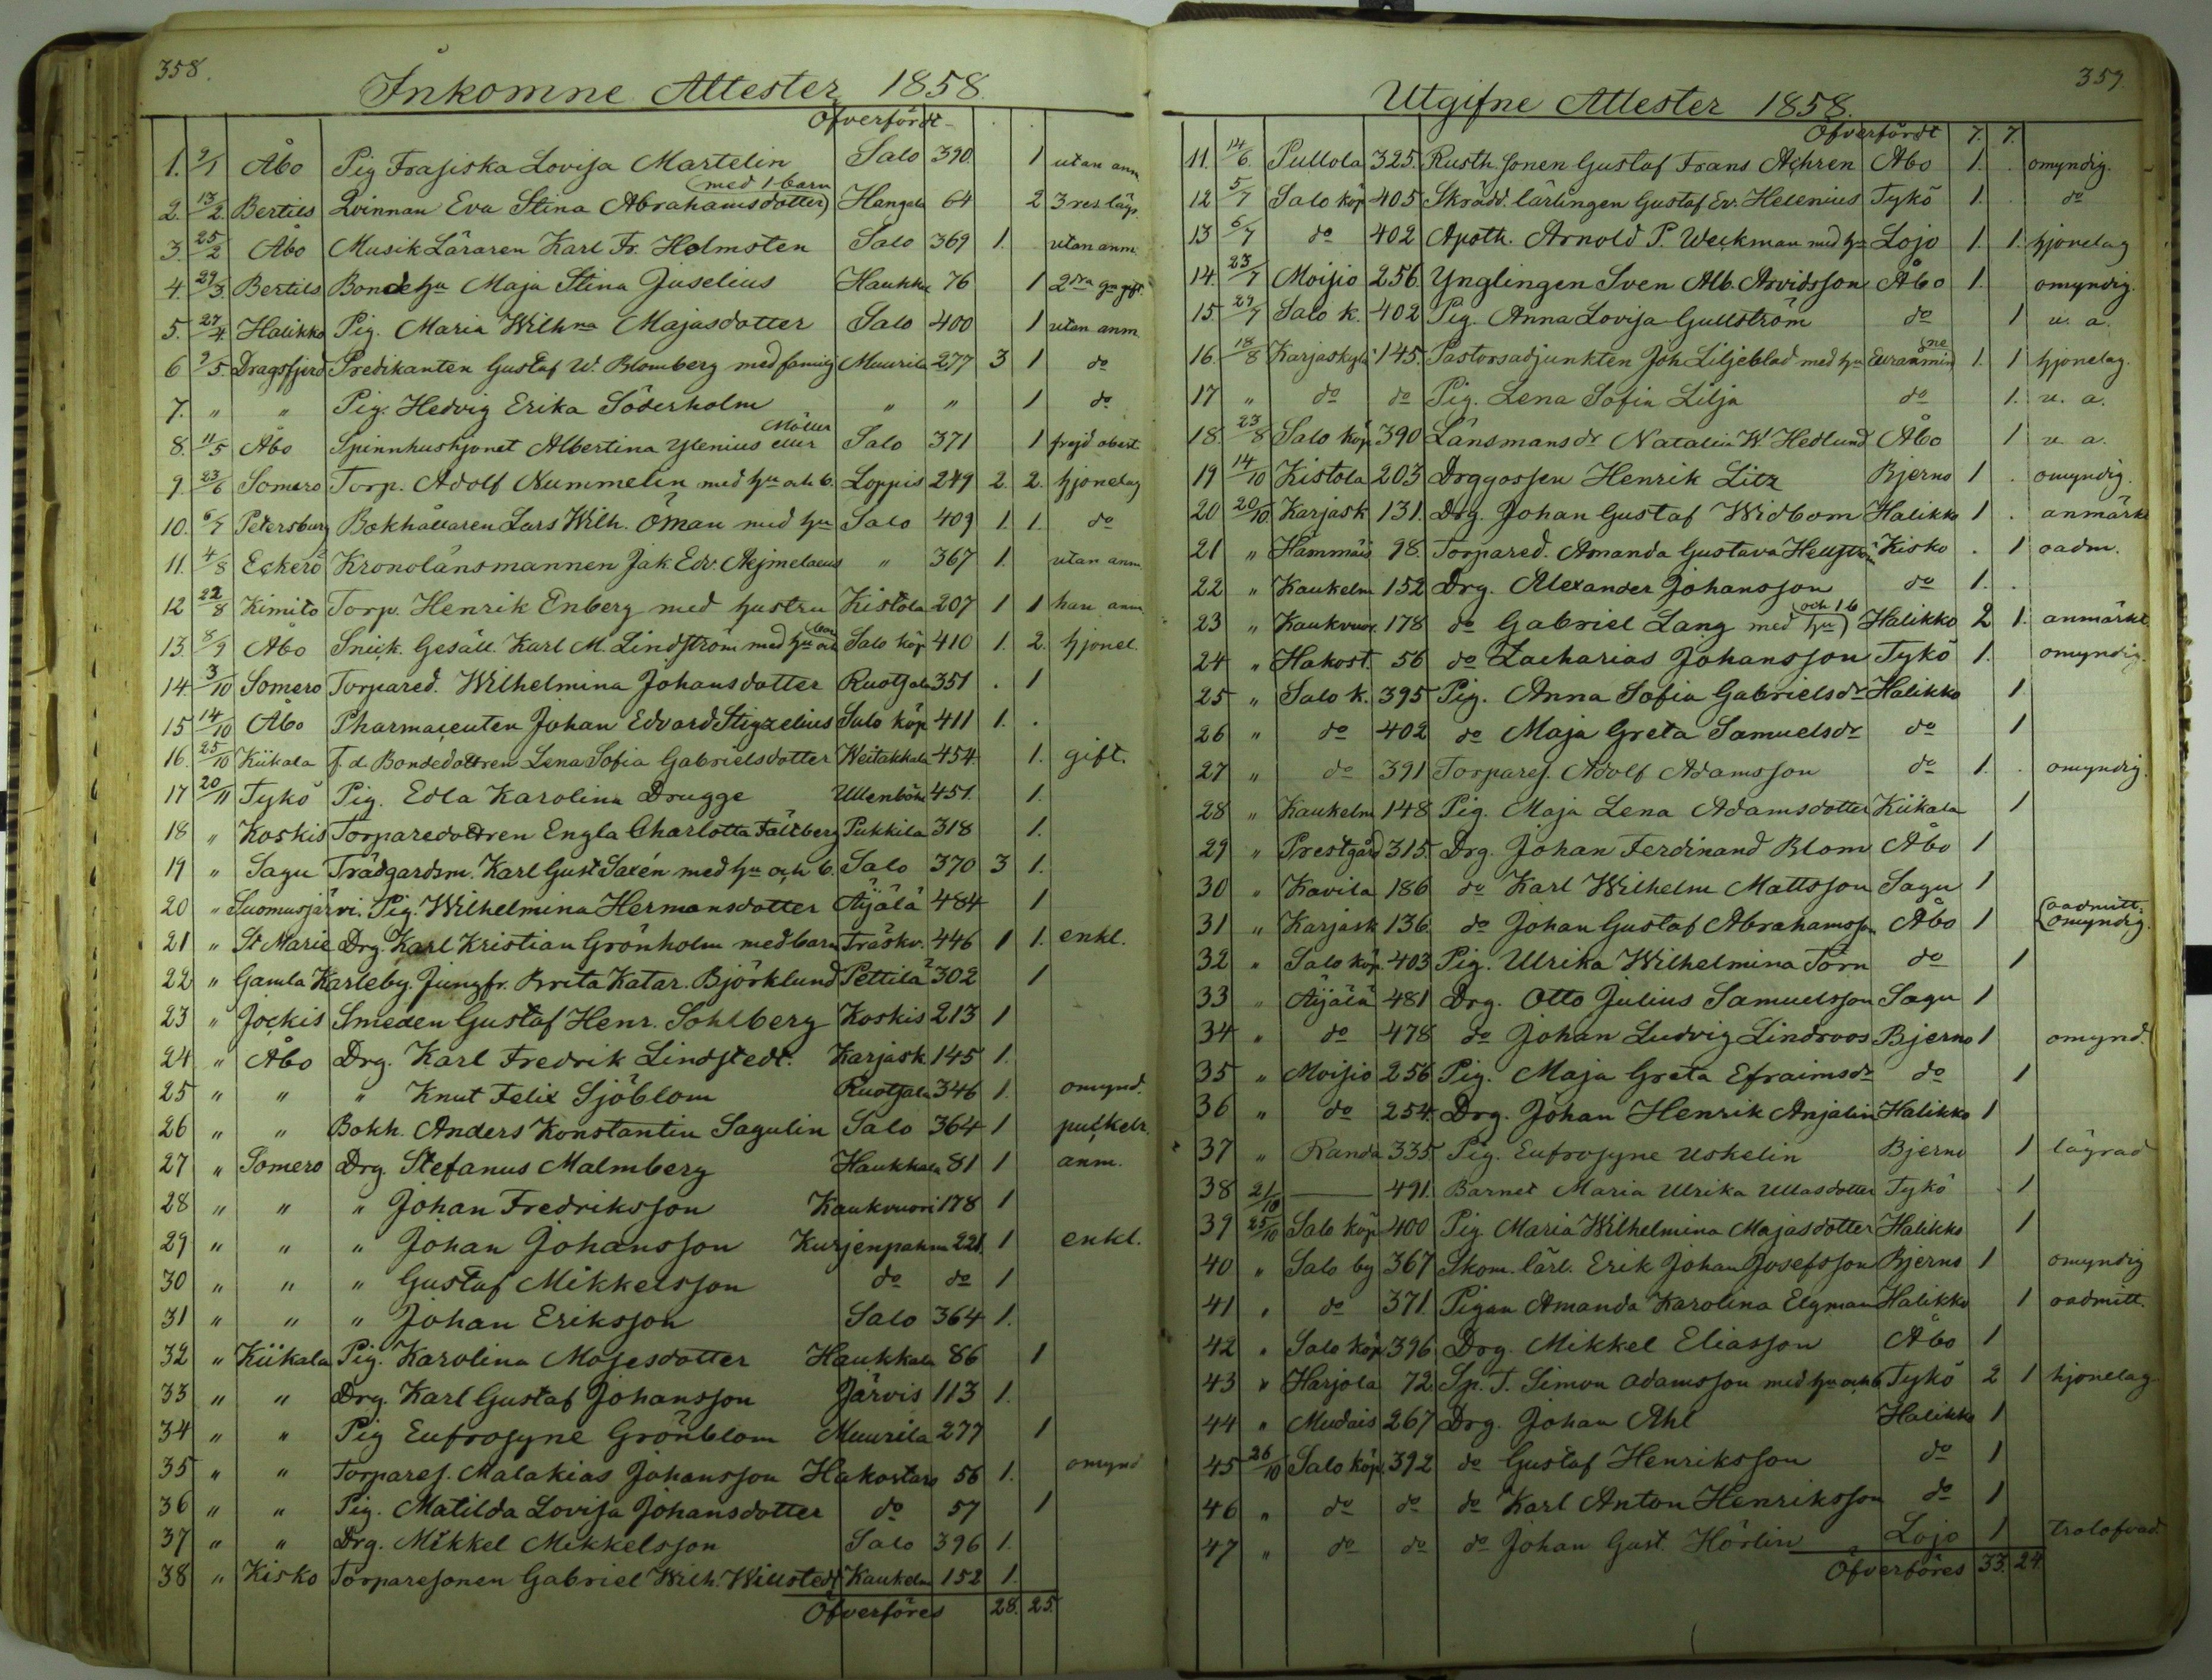 358.
Inkomne Attester 1858.
Öfverfördt
1. 9/1 Åbo Pig. Frasiska Lovisa Martelin Salo 390. 1 utan anm
med 1 barn
2. 13/2 Bertils Qvinnan Eva Stina Abrahamsdotter Hangela 64 2 3 res. läg.
3. 25/2 Åbo Musik Läraren Karl Fr. Holmsten Salo 369 1. utan anm.
4. 29/3. Bertils Bonde hu Maja Stina Juselius Haukka 76 1 2dra g. gift.
5. 27/4. Halikko Pig. Maria Wilhna Majasdotter Salo 400 1 utan anm.
6 9/5 Dragsfjerd Predikanten Gustaf W. Blomberg med familj Muurila 277 3 1 do
7. " " Pig. Hedvig Erika Söderholm " " 1 do
Möller
8. 11/5 Åbo Spinnhushjonet Albertina Ylenius eller Salo 371 1 frejd obest.
9. 23/6 Somero Torp. Adolf Nummelin med hu och b. Loppis 249 2. 2. hjonelag
10. 6/7 Petersburg Bokhållaren Lars Wilh. Öman med hu Salo 409 1. 1. do
11. 4/8 Eckerö Kronolänsmannen Jak. Edv. Aejmelaeus " 367 1. utan anm.
12 22/8 Kimito Torp. Henrik Enberg med hustru Kistola 207 1 1 han anm
barn
13 8/9 Åbo Snick. Gesäll. Karl M. Lindström med hu och Salo köp 410 1. 2. hjonel.
14 3/10 Somero Torpared. Wilhelmina Johansdotter Ruotsala 351 . 1
15 14/10 Åbo Pharmaceuten Johan Edvard Stigzelius Salo köp 411 1. .
16. 25/10 Kiikala f.d. Bondedottren Lena Sofia Gabrielsdotter Weitakkala 454. 1. gift.
17 20/11 Tykö Pig. Edla Karolina Drugge Ullenböle 451. 1.
18 " Koskis Torparedottren Engla Charlotta Fältberg Pukkila 318 1.
19 " Sagu Trädgårdsm. Karl Gust Saxén med hu och b. Salo 370 3 1.
20 " Suomusjärvi. Pig. Wilhelmina Hermansdotter Äijälä 484 1
21 " St Marie Drg. Karl Kristian Grönholm med barn Träskv. 446 1 1. enkl.
22 " Gamla Karleby. Jungfr. Brita Katar. Björklund Pettilä 302 1
23 " Jockis Smeden Gustaf Henr. Sohlberg Koskis 213 1
24 " Åbo Drg. Karl Fredrik Lindstedt. Karjask 145 1.
25 " " " Knut Felix Sjöblom Ruotsala 346 1. omynd.
26 " " Bokh. Anders Konstantin Sagulin Salo 364 1
27 " Somero Drg. Stefanus Malmberg Haukkala 81 1 anm.
28 " " " Johan Fredriksson Kaukvuori 178 1
29 " " " Johan Johansson Kurjenpahna 221. 1 enkl.
30 " " " Gustaf Mikkelsson do do 1
31 " " " Johan Eriksson Salo 364 1.
32 " Kiikala Pig. Karolina Mosesdotter Haukkala 86 1
33 " " Drg. Karl Gustaf Johansson Järvis 113 1.
34 " " Pig Eufrosyne Grönblom Muurila 277 1
35 " " Torpares. Malakias Johansson Hakostaro 56 1. omynd
36 " " Pig. Matilda Lovisa Johansdotter do 57 1
37 " " Drg. Mikkel Mikkelsson Salo 396 1.
38 " Kisko Torparesonen Gabriel Wilh. Willstedt Kaukelm 152 1.
Öfverföres 28. 25.
359.
Utgifne Attester 1858.
Öfverfördt 7. 7.
11. 14/6. Pullola 325. Rusth. sonen Gustaf Frans Achren Åbo 1. . omyndig.
12 5/7 Salo köp 405 Skrädd. lärlingen Gustaf Ev. Helenius Tykö 1. . do
13 6/7 do 402 Apoth. Arnold P. Weckman med hu Lojo 1. 1. hjonelag
14. 23/7 Moisio 256. Ynglingen Sven Alb. Arvidsson Åbo 1. omyndig.
15 29/7 Salo k. 402 Pig. Anna Lovisa Gullström do 1 u. a.
16. 18/8 Karjaskylä 145. Pastorsadjunkten Joh. Liljeblad med hu Euraåminne 1. 1 hjonelag.
17 " do do Pig. Lena Sofia Lilja do 1. u. a.
18. 23/8 Salo köp. 390 Länsmansdr Natalia W. Hedlund Åbo 1 u. a.
19 14/10 Kistola 203 Drggossen Henrik Litz Bjerno 1 . omyndig.
20 20/10 Karjask 131. Drg. Johan Gustaf Widbom Halikko 1 . anmärkt
21 " Hammäis 98. Torpared. Amanda Gustava Hellström Kisko . 1 oadm.
22 " Kaukelm 152 Drg. Alexander Johansson do 1. .
och 1 b
23 " Kaukvuor. 178 do Gabriel Lang med hu Halikko 2 1. anmärkt
24 " Hakost. 56 do Zacharias Johansson Tykö 1. omyndig.
25 " Salo k. 395 Pig. Anna Sofia Gabrielsdr Halikko 1
26 " do 402 do Maja Greta Samuelsdr do 1
27 " do 391 Torpares. Adolf Adamsson do 1. . omyndig.
28 " Kaukelm 148 Pig. Maja Lena Adamsdotter Kiikala 1
29 " Prestgård 315. Drg. Johan Ferdinand Blom Åbo 1
30 " Kavila 186 do Karl Wilhelm Mattsson Sagu 1
oadmitt.
31 " Karjask 136. do Johan Gustaf Abrahamsson Åbo 1 omyndig.
32 " Salo köp. 403 Pig. Ulrika Wilhelmina Törn do 1
33 " Äijälä 481 Drg. Otto Julius Samuelsson Sagu 1
34 " do 478 do Johan Ludvig Lindroos Bjerno 1 omynd.
35 " Moisio 256 Pig. Maja Greta Efraimsdr do 1
36 " do 254. Drg. Johan Henrik Anjalin Halikko 1
37 " Randa 335 Pig. Eufrosyne Uskelin Bjerno 1 lägrad
38 21/10 491. Barnet Maria Ulrika Ullasdotter Tykö 1
39 25/10 Salo köp 400 Pig Maria Wilhelmina Majasdotter Halikko 1
40 " Salo by 367 Skom. lärl. Erik Johan Josefsson Bjerno 1 omyndig
41 " do 371. Pigan Amanda Karolina Elgman Halikko 1 oadmitt.
42 " Salo köp 396 Drg. Mikkel Eliasson Åbo 1
43 " Harjola 72. Sp. T. Simon Adamsson med hu och b Tykö 2 1 hjonelag.
44 " Mudais 267 Drg. Johan Ahl Halikko 1
45 26/10 Salo köp. 392 do Gustaf Henriksson do 1
46 " do do do Karl Anton Henriksson do 1
47 " do do do Johan Gust. Hörlin Lojo 1 trolofvad.
Öfverföres 33. 24.